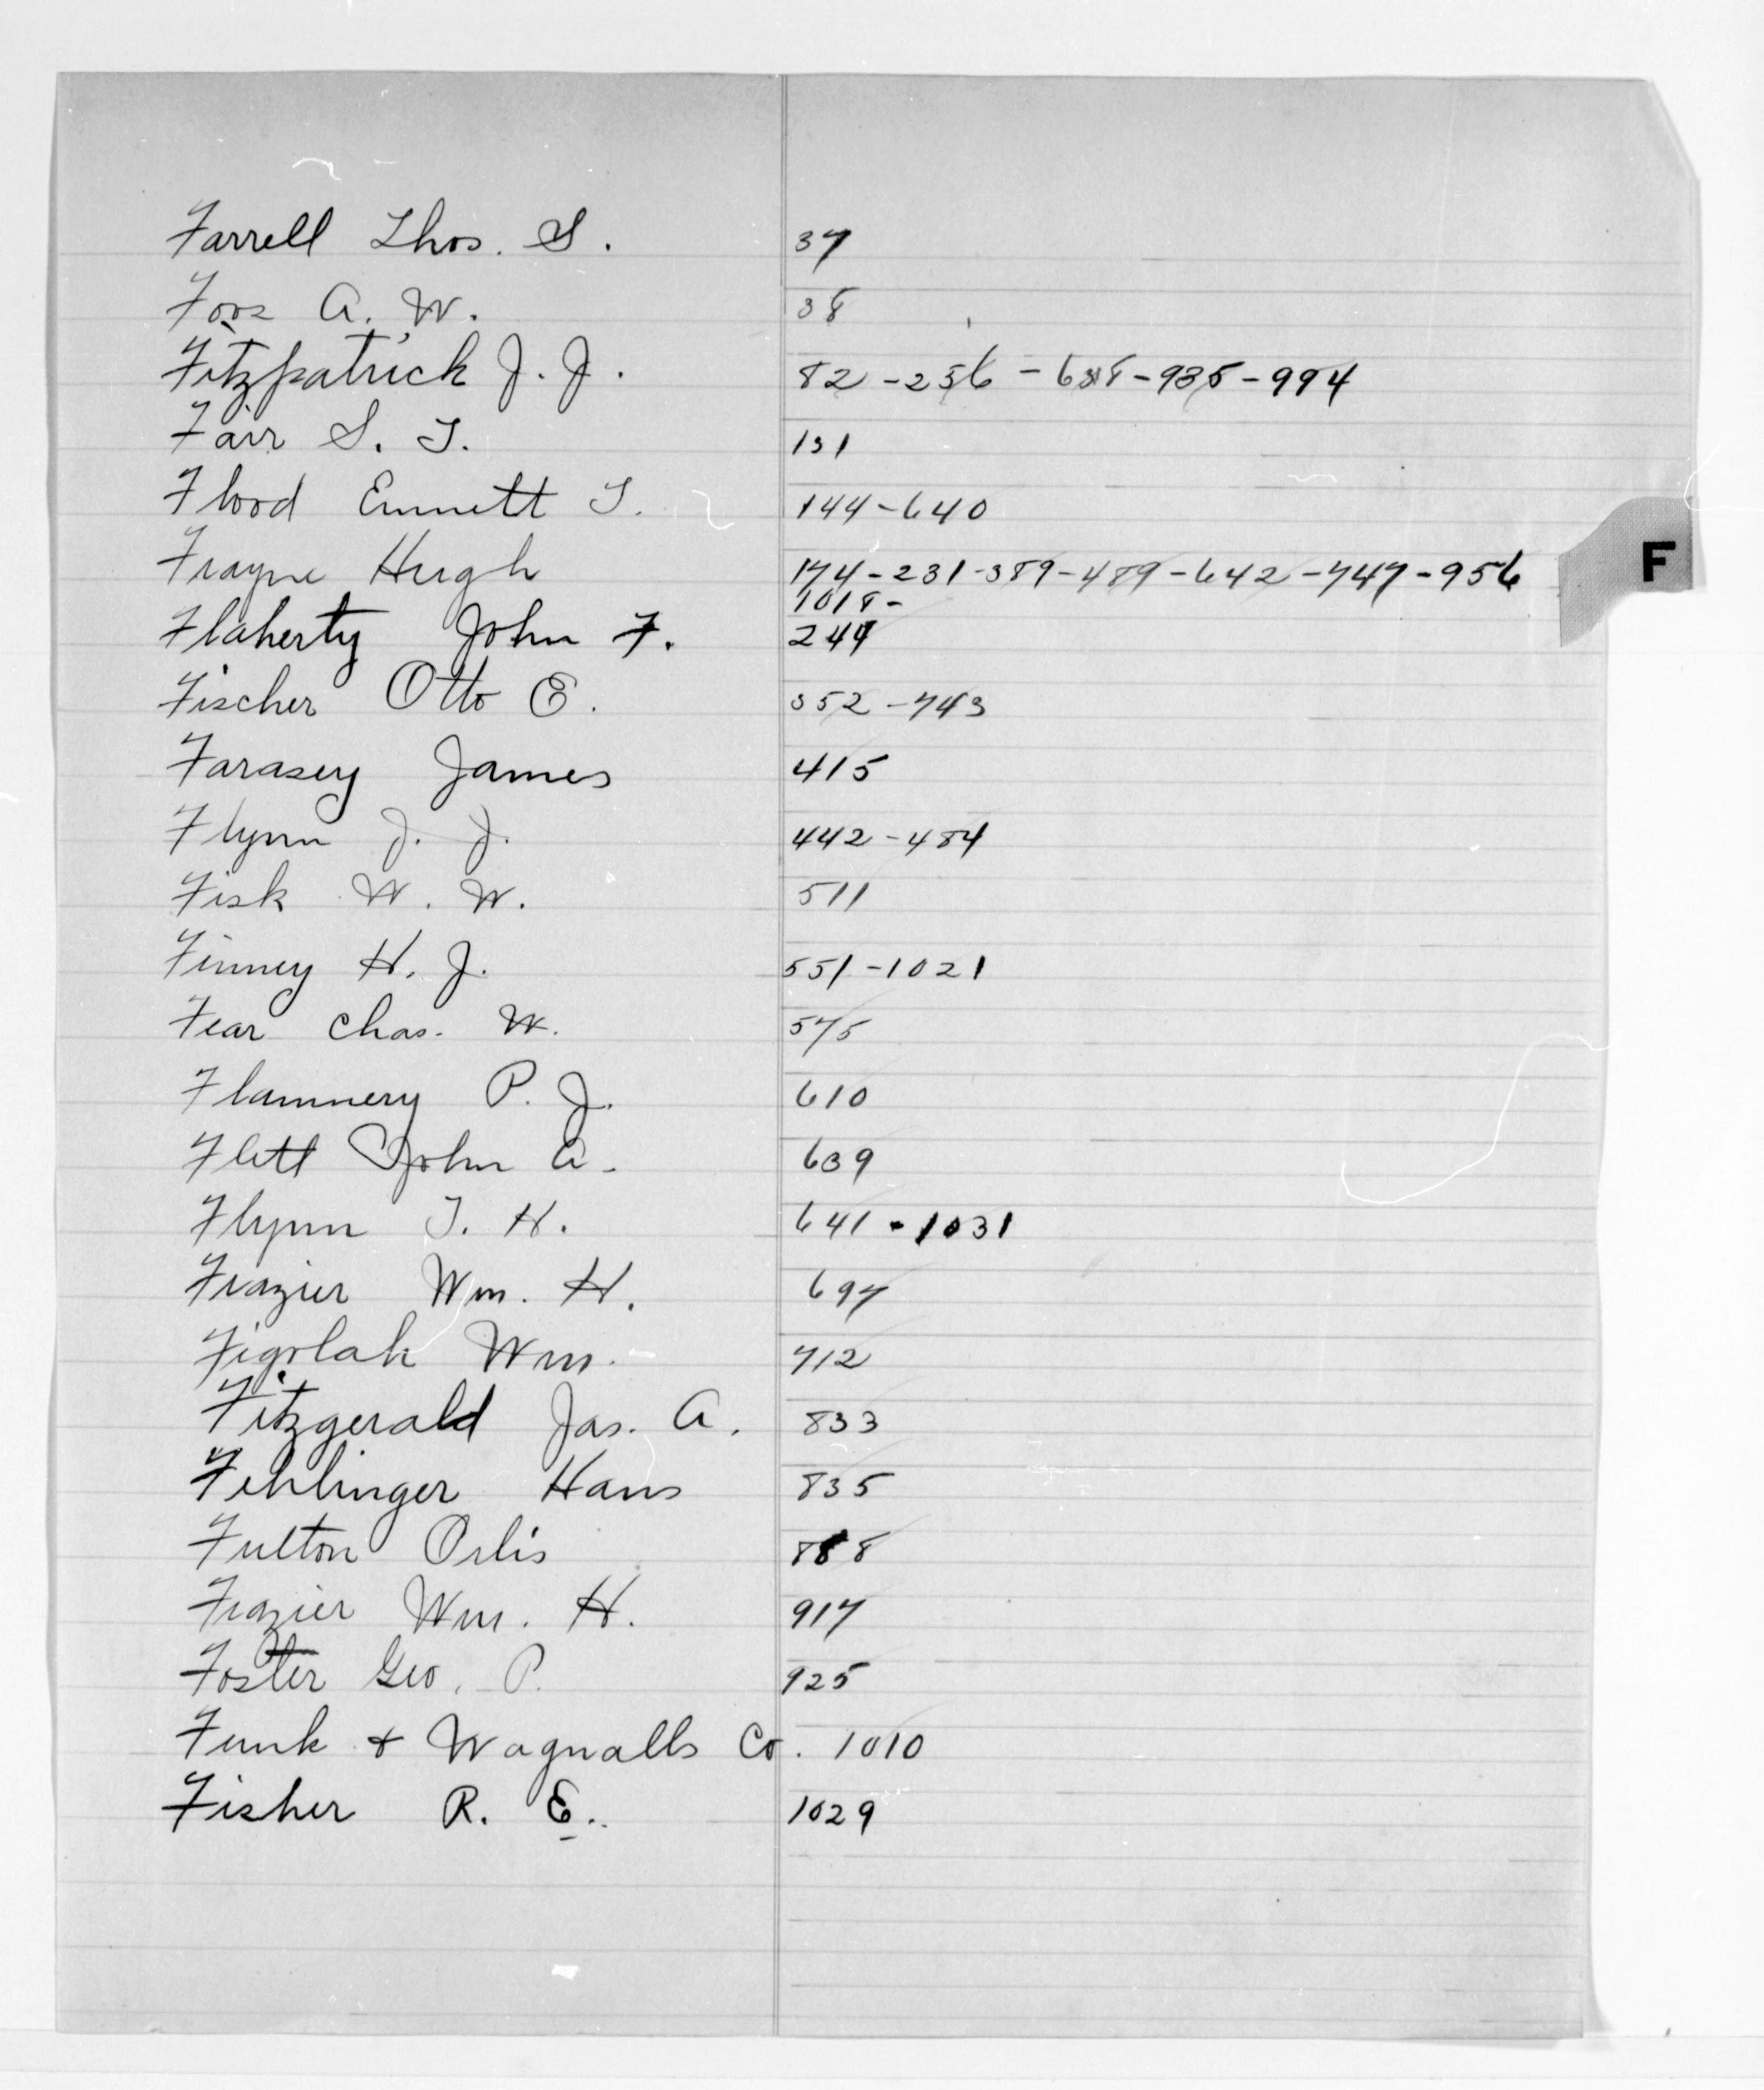 Farrell Thos. S. 37
Foos A. W. 38
Fitzpatrick J. J. 82 - 256 - 638 - 935 - 994
Fair S. T. 131
Flood Emmett T. 144 - 640
Frayne Hugh 174 - 231 - 389 - 489 - 642 - 747 - 956
1018 -
F
Flaherty John F. 244
Fischer Otto E. 352 - 743
Farasey James 415
Flynn J. J. 442 - 484
Fisk W. W. 511
Finney H. J. 551 - 1021
Fear Chas. W. 575
Flammery P. J. 610
Flett John A. 639
Flynn T. H. 641 - 1031
Frazier Wm. H. 697
Figolah Wm. 712
Fitzgerald Jas. A. 833
Fehlinger Hans 835
Fulton Orlis 888
Frazier Wm. H. 917
Foster Geo. P. 925
Funk & Wagnalls Co. 1010
Fisher R. E. 1029